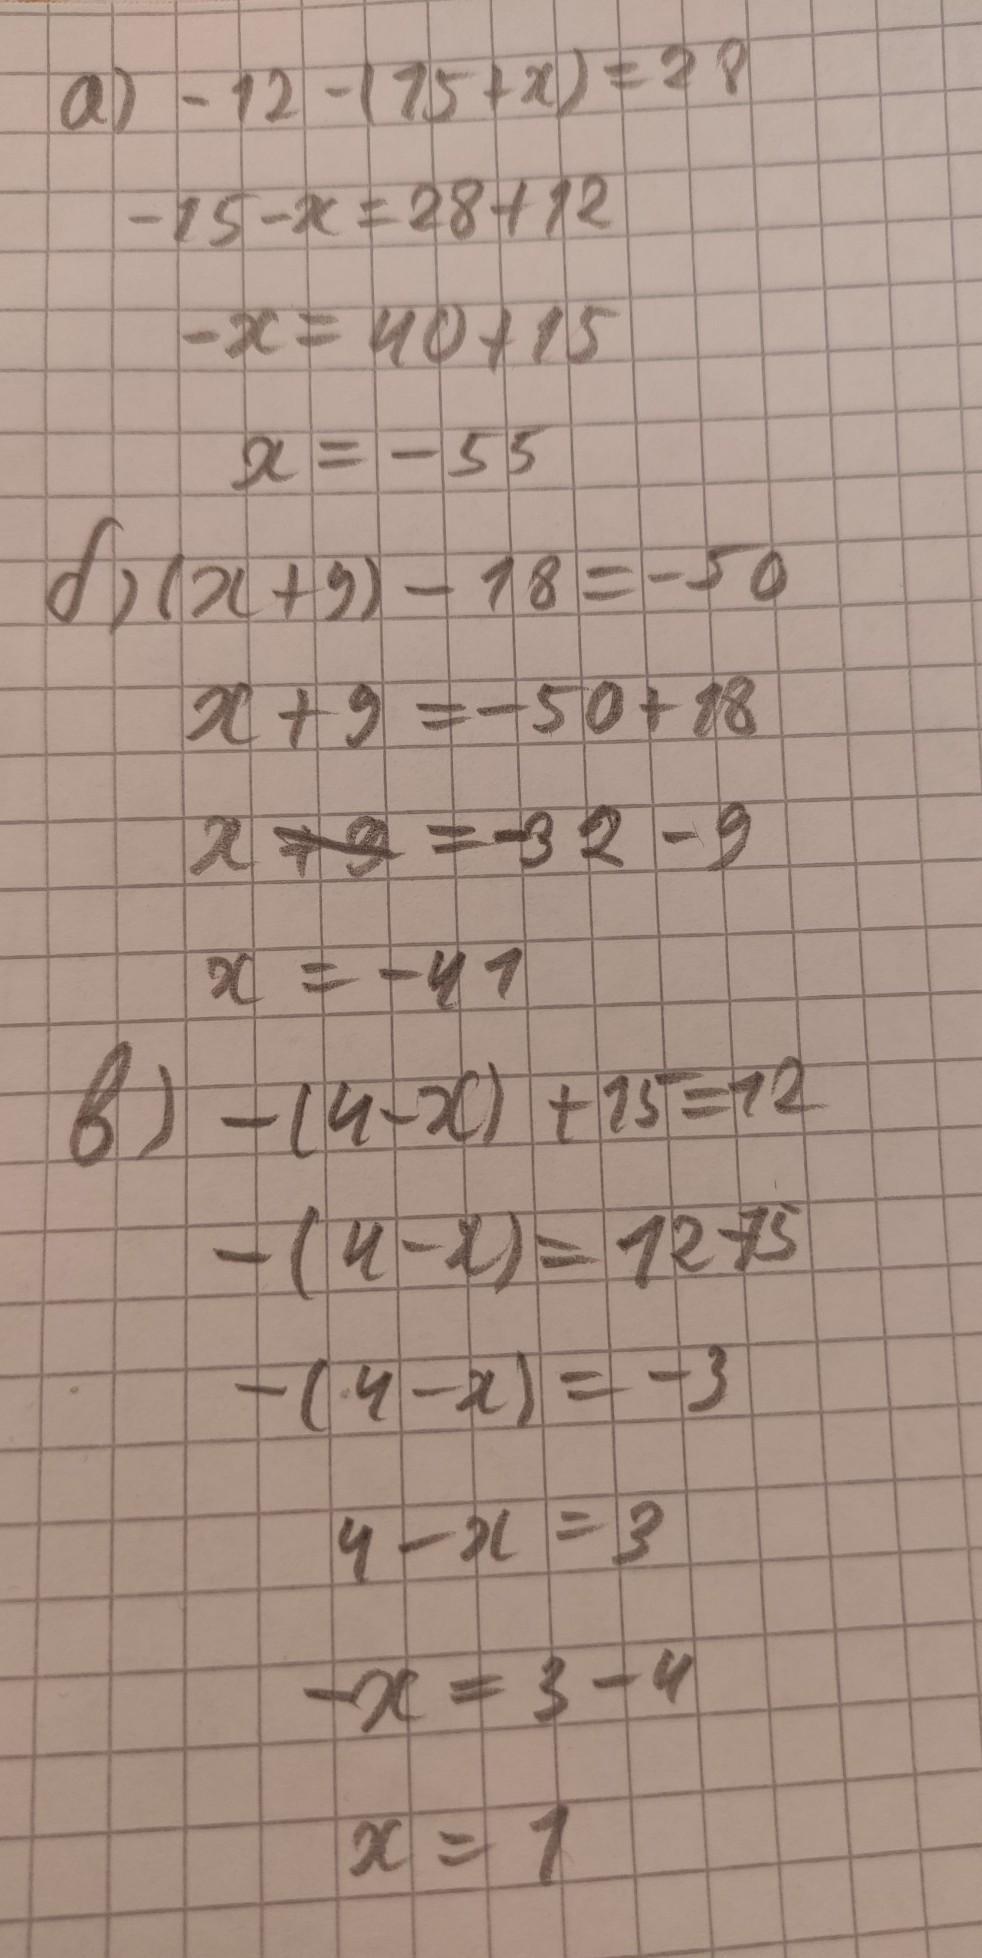 а) -12-(15+x)=28
-15-x=28+12
-x=40+15
x=-55
б) (x+9)-18=-50
x+9=-50+18
x =-32-9
x=-41
в) -(4-x)+15=12
-(4-x)=12-15
-(4-x)=-3
4-x=3
-x=3-4
x=1